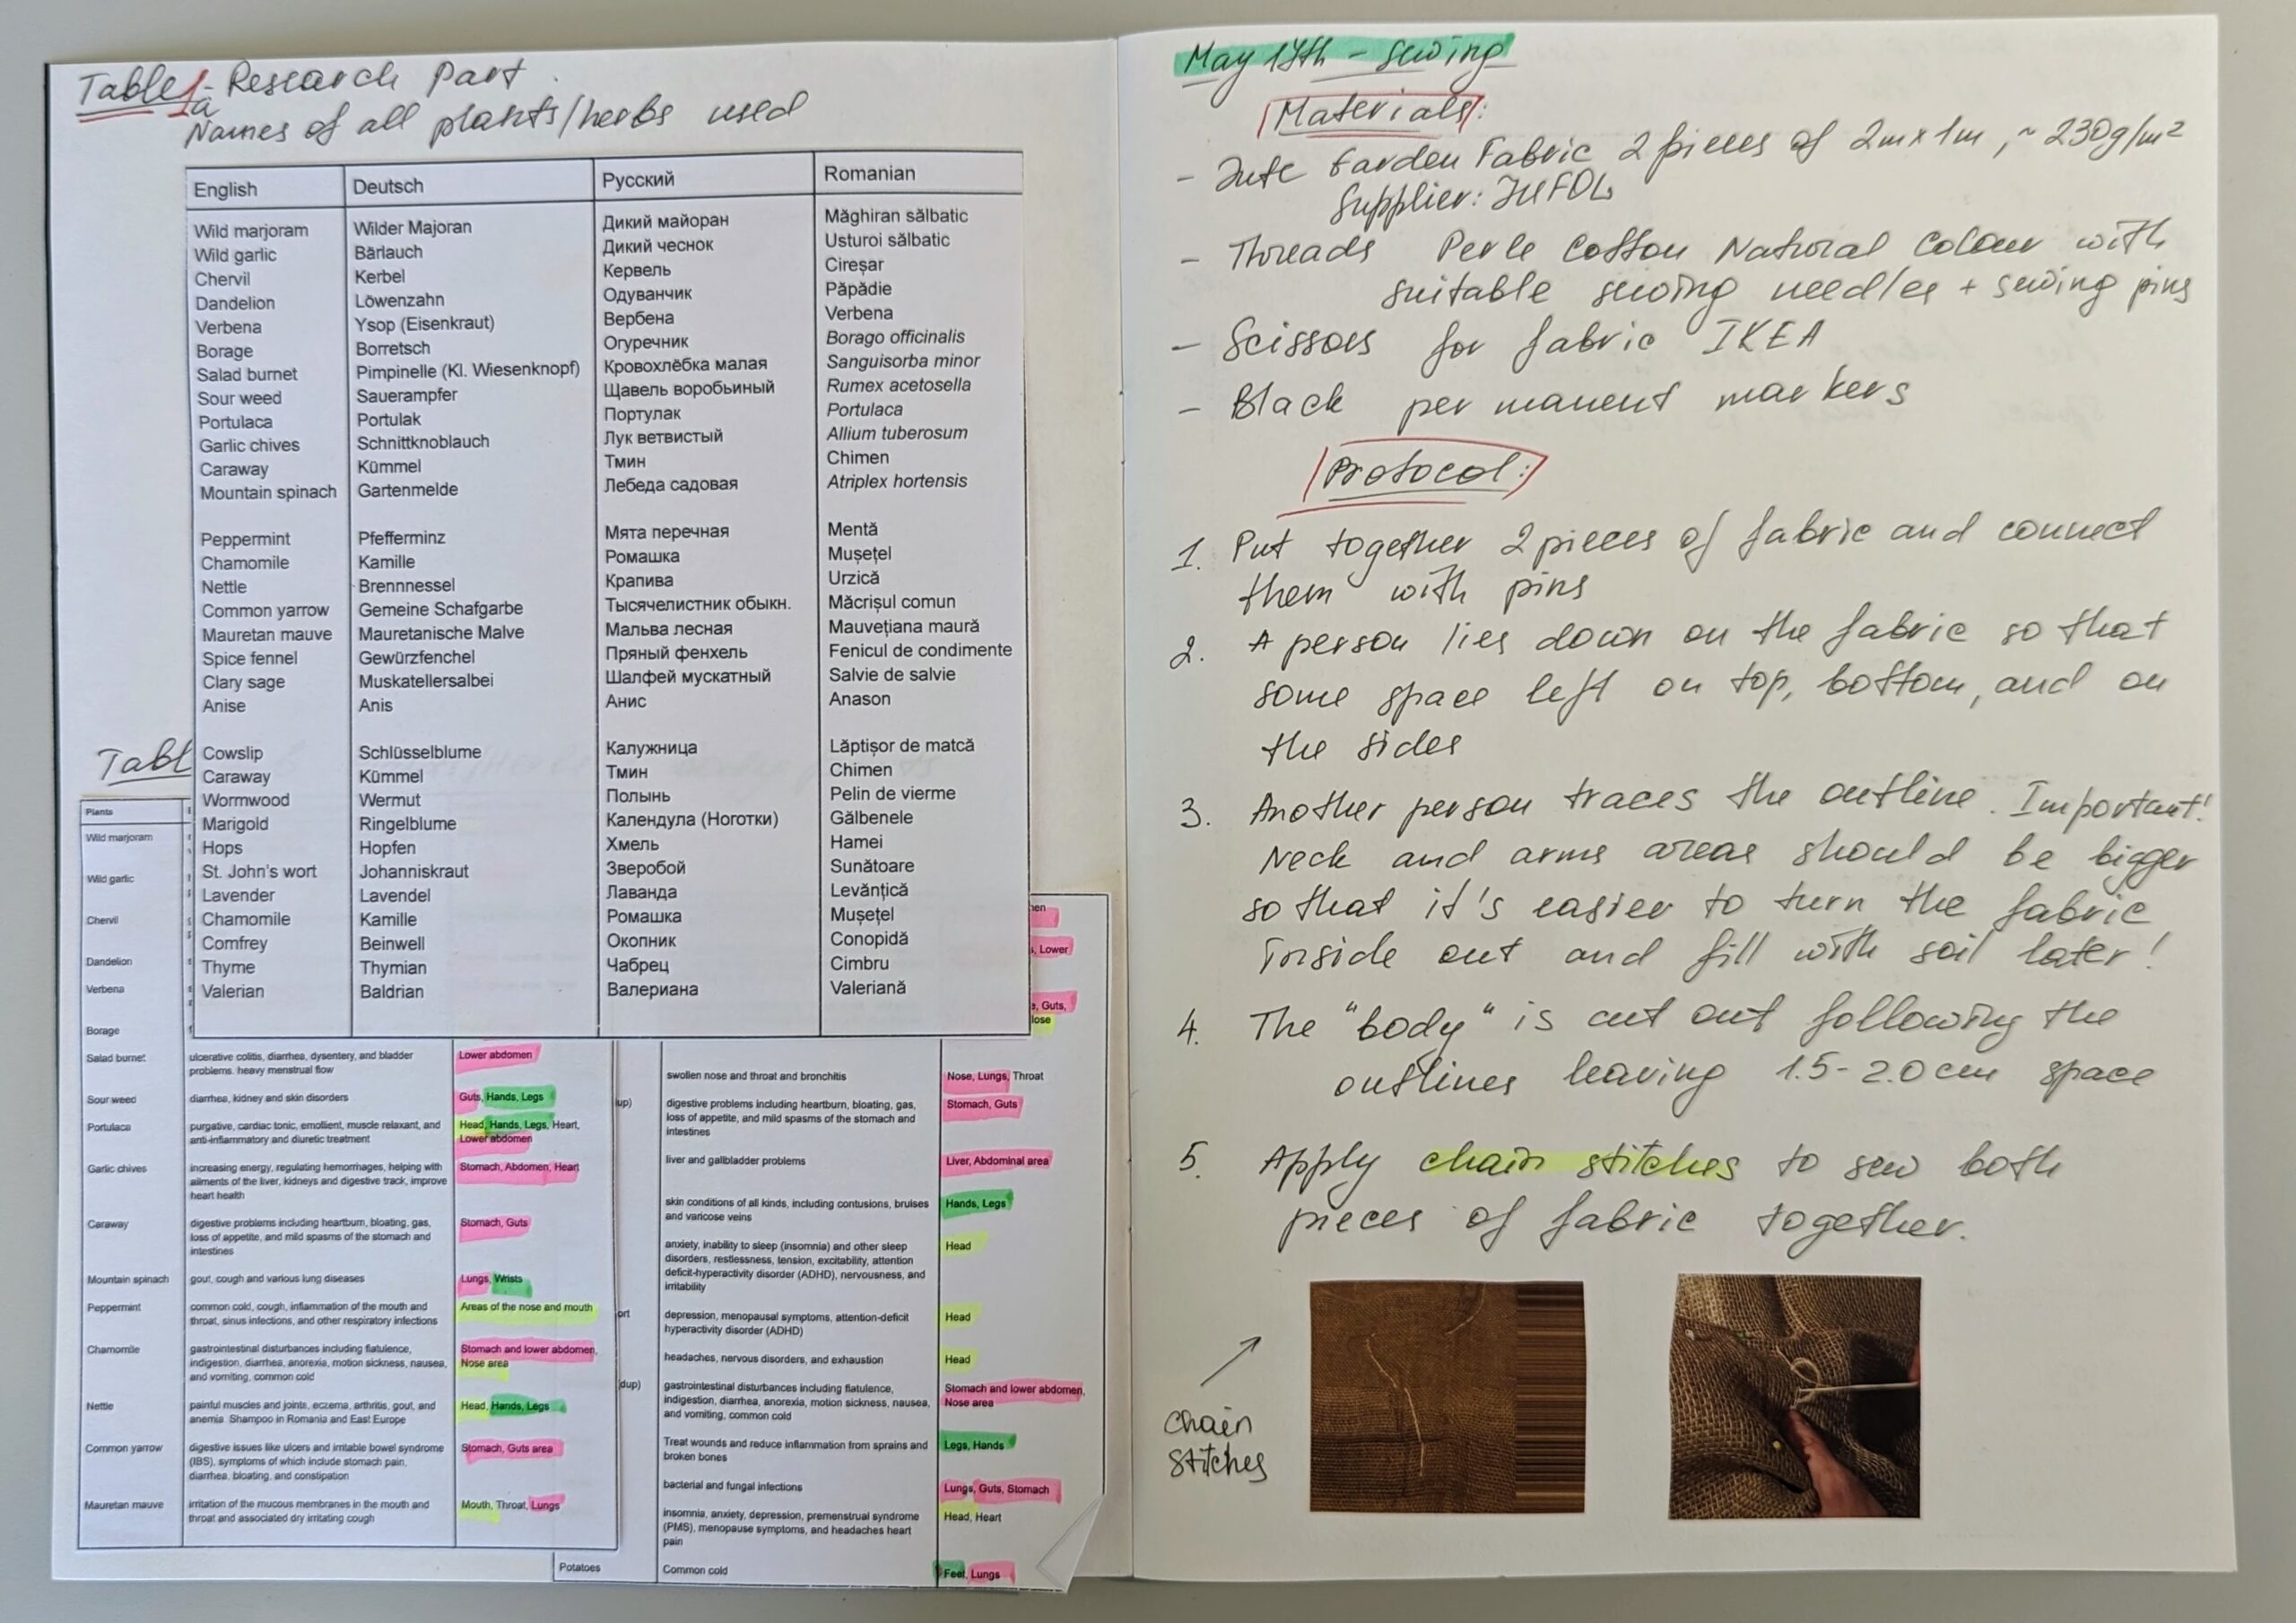 Table 1a - Research Part
Names of all plants/herbs used
English Deutsch Русский Romanian
Wild marjoram Wilder Majoran Дикий майоран Măghiran sălbatic
Wild garlic Bärlauch Дикий чеснок Usturoi sălbatic
Chervil Kerbel Кервель Cireșar
Dandelion Löwenzahn Одуванчик Păpădie
Verbena Ysop (Eisenkraut) Вербена Verbena
Borage Borretsch Огуречник Borago officinalis
Salad burnet Pimpinelle (Kl. Wiesenknopf) Кровохлёбка малая Sanguisorba minor
Sour weed Sauerampfer Щавель воробьиный Rumex acetosella
Portulaca Portulak Портулак Portulaca
Garlic chives Schnittknoblauch Лук ветвистый Allium tuberosum
Caraway Kümmel Тмин Chimen
Mountain spinach Gartenmelde Лебеда садовая Atriplex hortensis
Peppermint Pfefferminz Мята перечная Mentă
Chamomile Kamille Ромашка Mușețel
Nettle Brennnessel Крапива Urzică
Common yarrow Gemeine Schafgarbe Тысячелистник обыкн. Măcrișul comun
Mauretan mauve Mauretanische Malve Мальва лесная Mauvețiana maură
Spice fennel Gewürzfenchel Пряный фенхель Fenicul de condimente
Clary sage Muskatellersalbei Шалфей мускатный Salvie de salvie
Anise Anis Анис Anason
Cowslip Schlüsselblume Калужница Lăptișor de matcă
Caraway Kümmel Тмин Chimen
Wormwood Wermut Полынь Pelin de vierme
Marigold Ringelblume Календула (Ноготки) Gălbenele
Hops Hopfen Хмель Hamei
St. John's wort Johanniskraut Зверобой Sunătoare
Lavender Lavendel Лаванда Levănțică
Chamomile Kamille Ромашка Mușețel
Comfrey Beinwell Окопник Conopidă
Thyme Thymian Чабрец Cimbru
Valerian Baldrian Валериана Valeriană
Tabl
Plants
Wild marjoram
Wild garlic
Chervil
Dandelion
Verbena
Borage
Salad burnet ulcerative colitis, diarrhea, dysentery, and bladder Lower abdomen
problems. heavy menstrual flow
Sour weed diarrhea, kidney and skin disorders Guts, Hands, Legs
Portulaca purgative, cardiac tonic, emollient, muscle relaxant, and Head, Hands, Legs, Heart,
anti-inflammatory and diuretic treatment Lower abdomen
Garlic chives increasing energy, regulating hemorrhages, helping with Stomach, Abdomen, Heart
ailments of the liver, kidneys and digestive track, improve
heart health
Caraway digestive problems including heartburn, bloating, gas, Stomach, Guts
loss of appetite, and mild spasms of the stomach and
intestines
Mountain spinach gout, cough and various lung diseases Lungs, Wrists
Peppermint common cold, cough, inflammation of the mouth and Areas of the nose and mouth
throat, sinus infections, and other respiratory infections
Chamomile gastrointestinal disturbances including flatulence, Stomach and lower abdomen,
indigestion, diarrhea, anorexia, motion sickness, nausea, Nose area
and vomiting, common cold
Nettle painful muscles and joints, eczema, arthritis, gout, and Head, Hands, Legs
anemia. Shampoo in Romania and East Europe
Common yarrow digestive issues like ulcers and irritable bowel syndrome Stomach, Guts area
(IBS), symptoms of which include stomach pain,
diarrhea, bloating, and constipation
Mauretan mauve irritation of the mucous membranes in the mouth and Mouth, Throat, Lungs
throat and associated dry irritating cough
Lower
Guts,
swollen nose and throat and bronchitis Nose, Lungs, Throat
up) digestive problems including heartburn, bloating, gas, Stomach, Guts
loss of appetite, and mild spasms of the stomach and
intestines
liver and gallbladder problems Liver, Abdominal area
skin conditions of all kinds, including contusions, bruises Hands, Legs
and varicose veins
anxiety, inability to sleep (insomnia) and other sleep Head
disorders, restlessness, tension, excitability, attention
deficit-hyperactivity disorder (ADHD), nervousness, and
irritability
ort depression, menopausal symptoms, attention-deficit Head
hyperactivity disorder (ADHD)
headaches, nervous disorders, and exhaustion Head
dup) gastrointestinal disturbances including flatulence, Stomach and lower abdomen,
indigestion, diarrhea, anorexia, motion sickness, nausea, Nose area
and vomiting, common cold
Treat wounds and reduce inflammation from sprains and Legs, Hands
broken bones
bacterial and fungal infections Lungs, Guts, Stomach
insomnia, anxiety, depression, premenstrual syndrome Head, Heart
(PMS), menopause symptoms, and headaches heart
pain
Potatoes Common cold Feet, Lungs
May 17th - sewing
Materials:
- Jute Garden Fabric 2 pieces of 2m x 1m, ~ 230g/m²
Supplier:
- Threads Perle Cotton Natural Colour with
suitable sewing needles + sewing pins
- Scissors for fabric IKEA
- Black permanent markers
Protocol:
1. Put together 2 pieces of fabric and connect
them with pins
2. A person lies down on the fabric so that
some space left on top, bottom, and on
the sides
3. Another person traces the outline. Important!
Neck and arms areas should be bigger
so that it's easier to turn the fabric
inside out and fill with soil later!
4. The "body" is cut out following the
outlines leaving 1.5-2.0 cm space
5. Apply chain stitches to sew both
pieces of fabric together.
chain
stitches